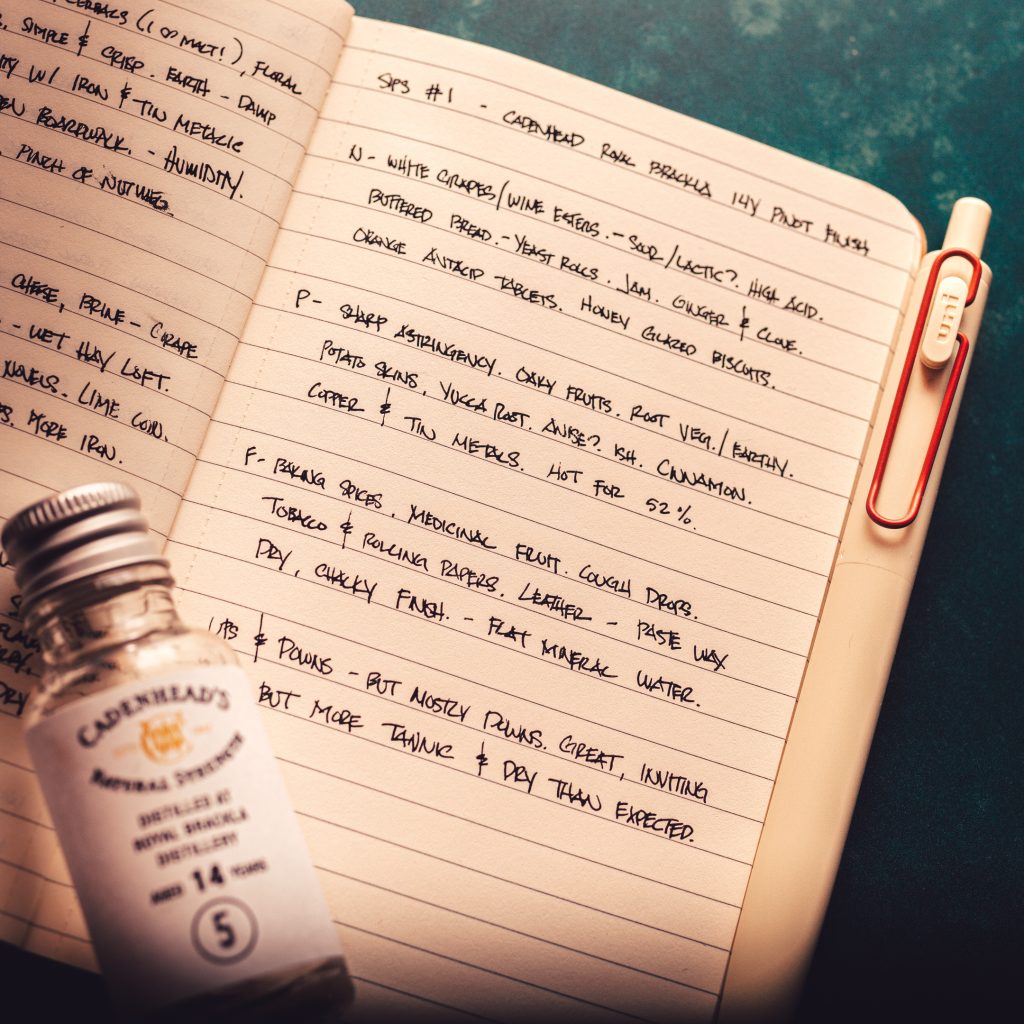 CEREALS (100 MALT!), FLORAL
SIMPLE & CRISP. EARTH - DAMP
W/ IRON & TIN METALIC
BOARDWALK. - HUMIDITY.
PINCH OF NUTMEG.
CHEESE, BRINE - GRAPE
- WET HAY LOFT.
LIME COIN.
MORE IRON.
DRY
SIPS #1 - CADENHEAD ROYAL BRACKLA 14Y PINOT FINISH
N - WHITE GRAPES/WINE ESTERS. - SOUR/LACTIC? HIGH ACID.
BUTTERED BREAD. - YEAST ROLLS. JAM. GINGER & CLOVE.
ORANGE ANTACID TABLETS. HONEY GLAZED BISCUITS.
P - SHARP ASTRINGENCY. OAKY FRUITS. ROOT VEG./EARTHY.
POTATO SKINS, YUCCA ROOT. ANISE? ISH. CINNAMON.
COPPER & TIN METALS. HOT FOR 52%.
F - BAKING SPICES. MEDICINAL FRUIT. COUGH DROPS.
TOBACCO & ROLLING PAPERS. LEATHER - PASTE WAX
DRY, CHALKY FINISH. - FLAT MINERAL WATER.
UPS & DOWNS - BUT MOSTLY DOWNS. GREAT, INVITING
BUT MORE TANNIC & DRY THAN EXPECTED.
CADENHEAD'S
NATURAL STRENGTH
DISTILLED AT
ROYAL BRACKLA
DISTILLERY
AGED 14 YEARS
5